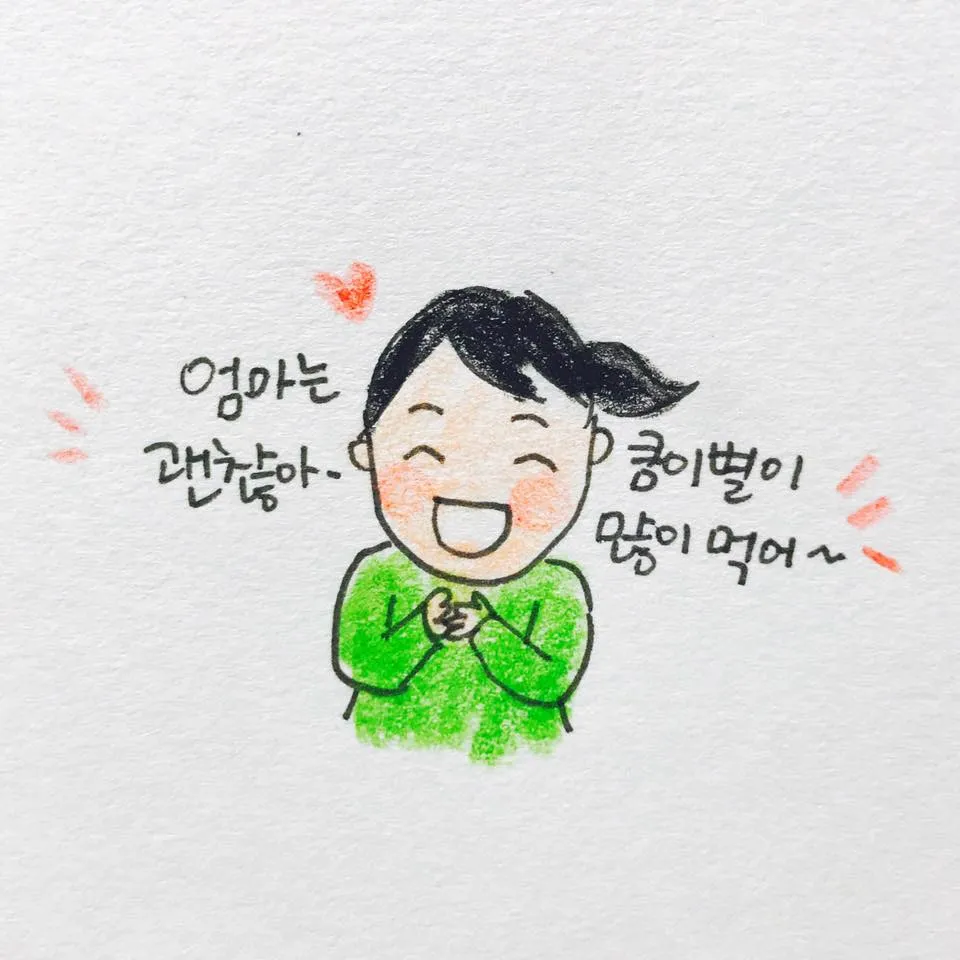 엄마는
괜찮아~
쿵이별이
많이 먹어~